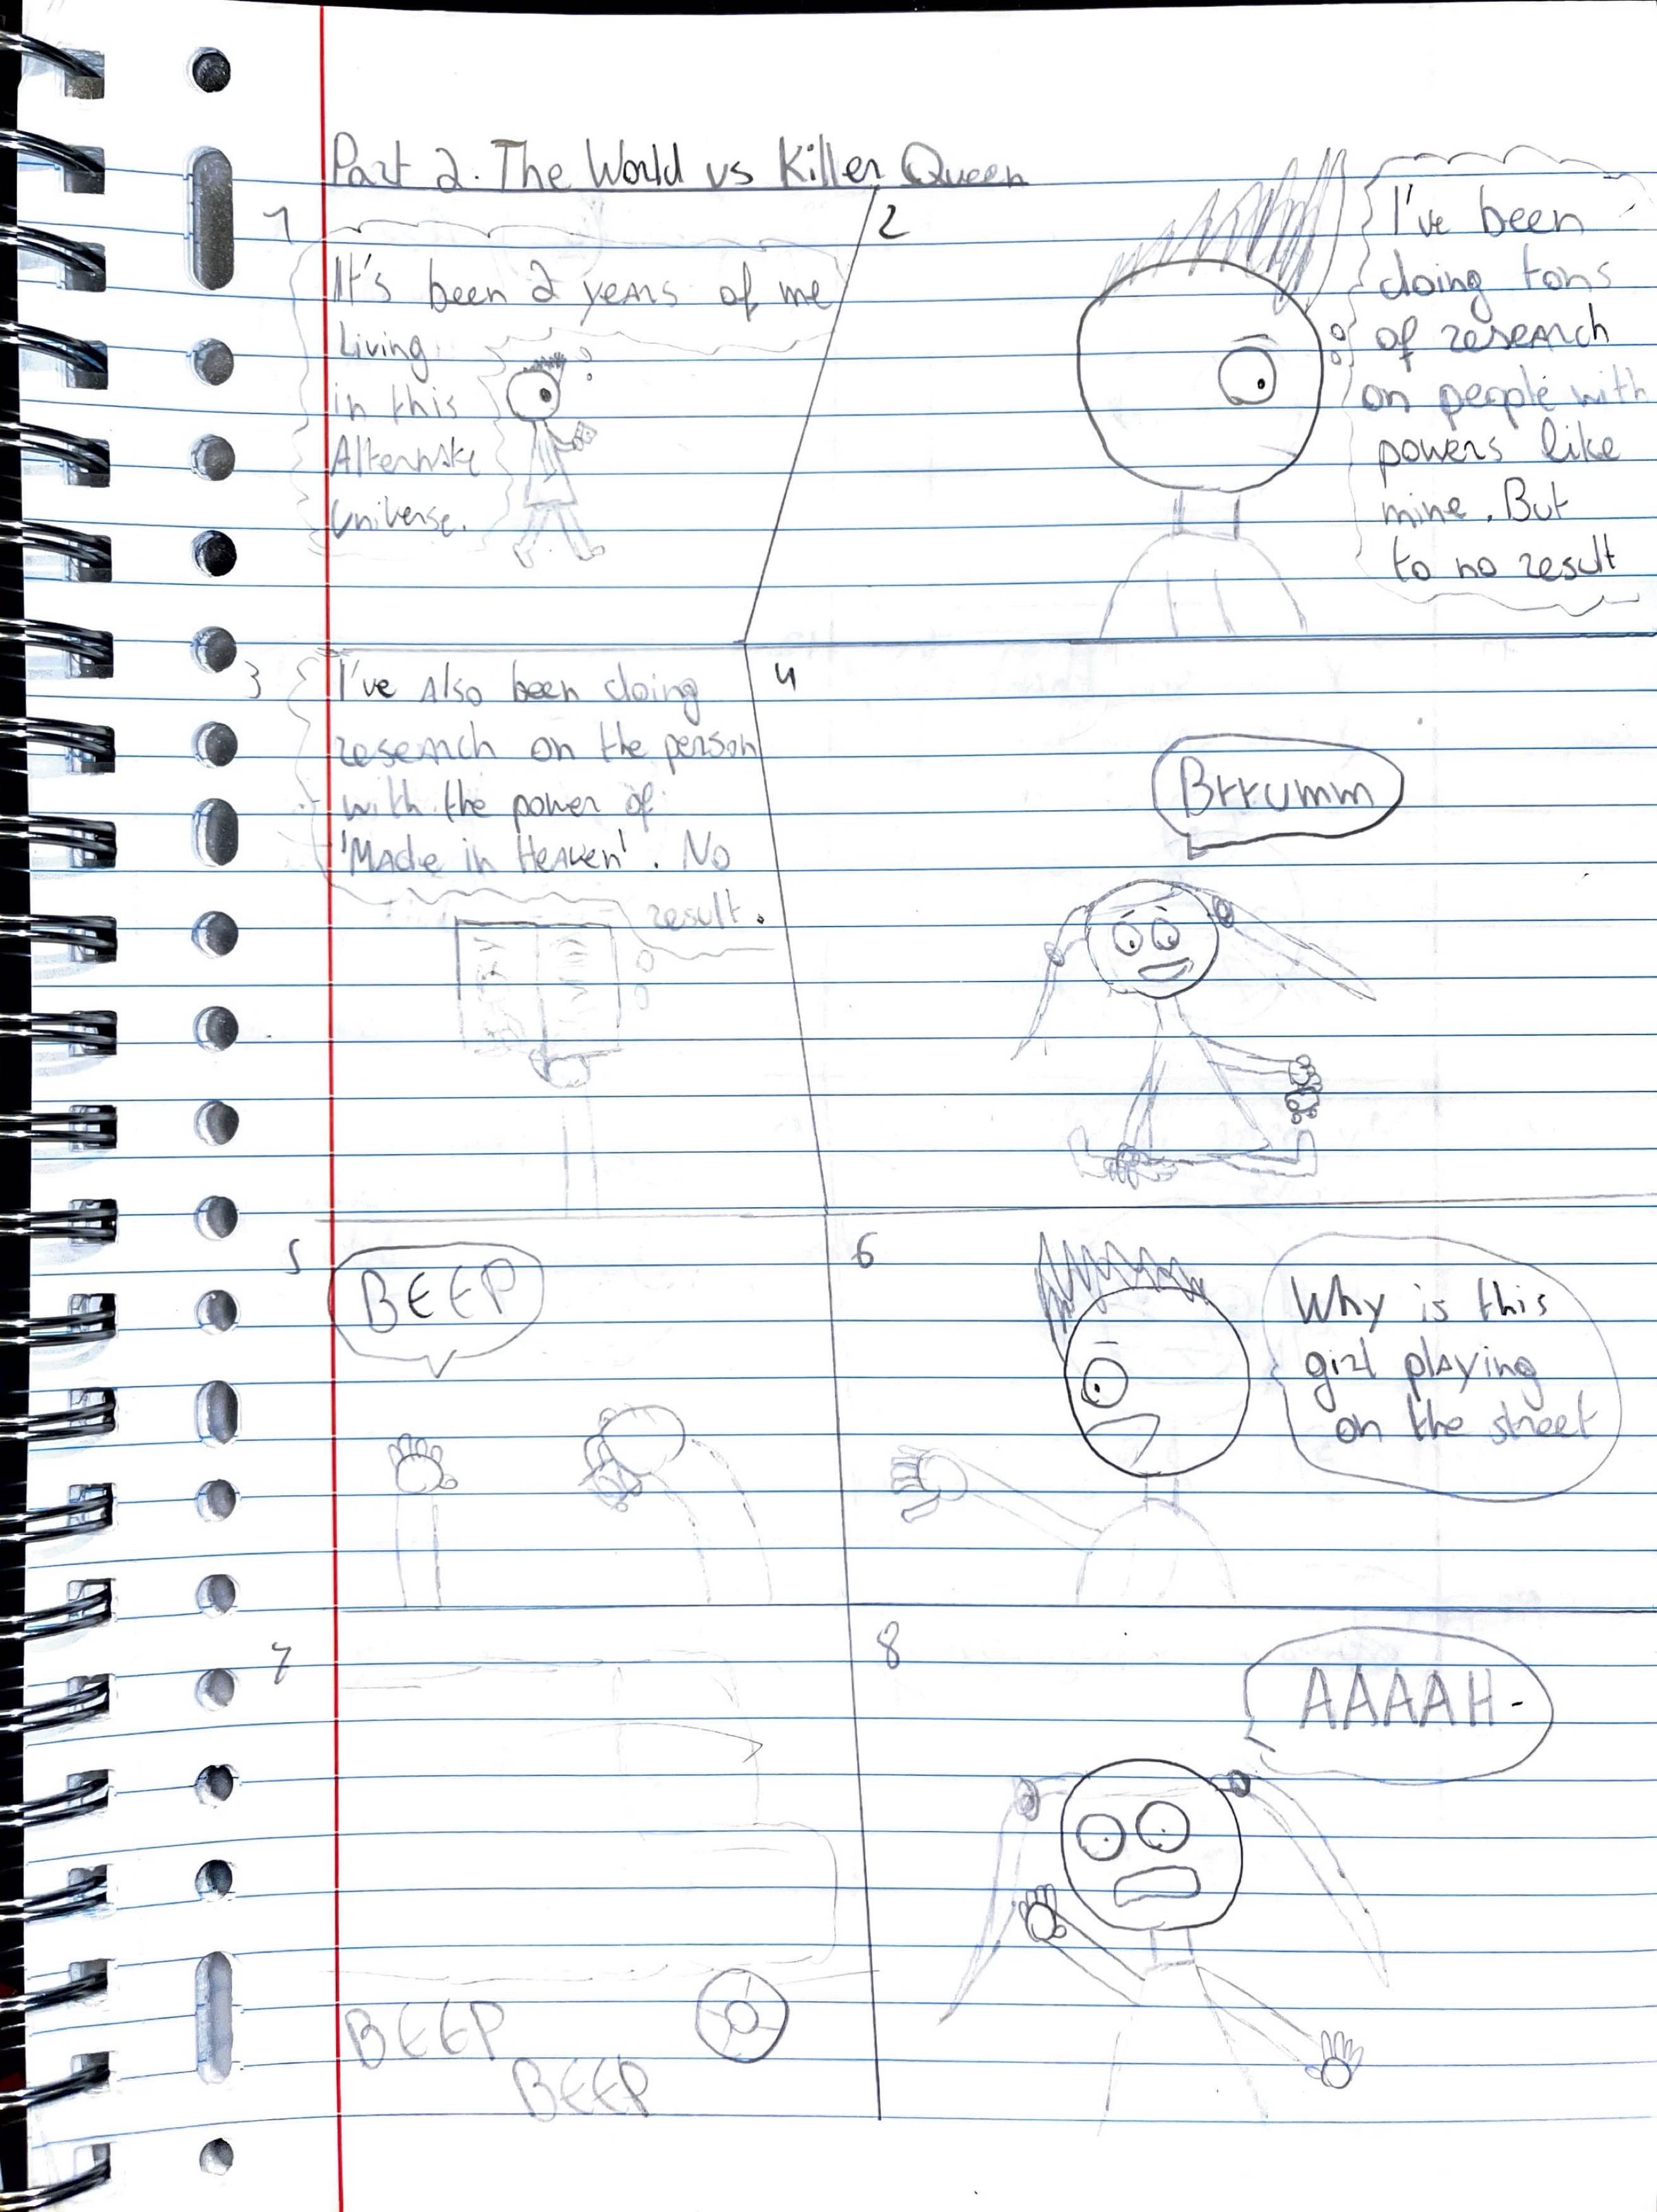 Part 2. The World vs Killer Queen
1
It's been 2 years of me
Living
in this
Alternate
Universe.
2
I've been
doing tons
of research
on people with
powers like
mine. But
to no result
3
I've also been doing
research on the person
with the power of
'Made in Heaven'. No
result.
4
Brrumm
5
BEEP
6
Why is this
girl playing
on the street
7
BEEP
BEEP
8
AAAAH-